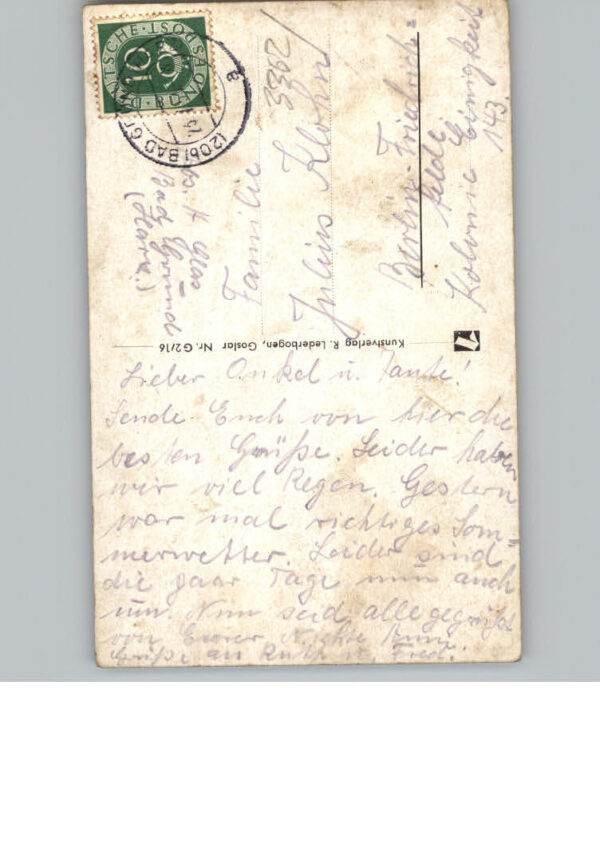 DEUTSCHE·BUNDESPOST
10
(20b) BAD GRUND
2933
Familie
Julius Klohn
Berlin-Friedrichs=
felde
Kolonie Einigkeit
143.
Bad Grund
(Harz.)
Kunstverlag R. Lederbogen, Goslar Nr. G2/16
Lieber Onkel u. Tante!
Sende Euch von hier die
besten Grüße. Leider haben
wir viel Regen. Gestern
war mal richtiges Som=
merwetter. Leider sind
die paar Tage nun auch
um. Nun seid alle gegrüßt
von Eurer Nichte
Grüße an Ruth u. Fred.